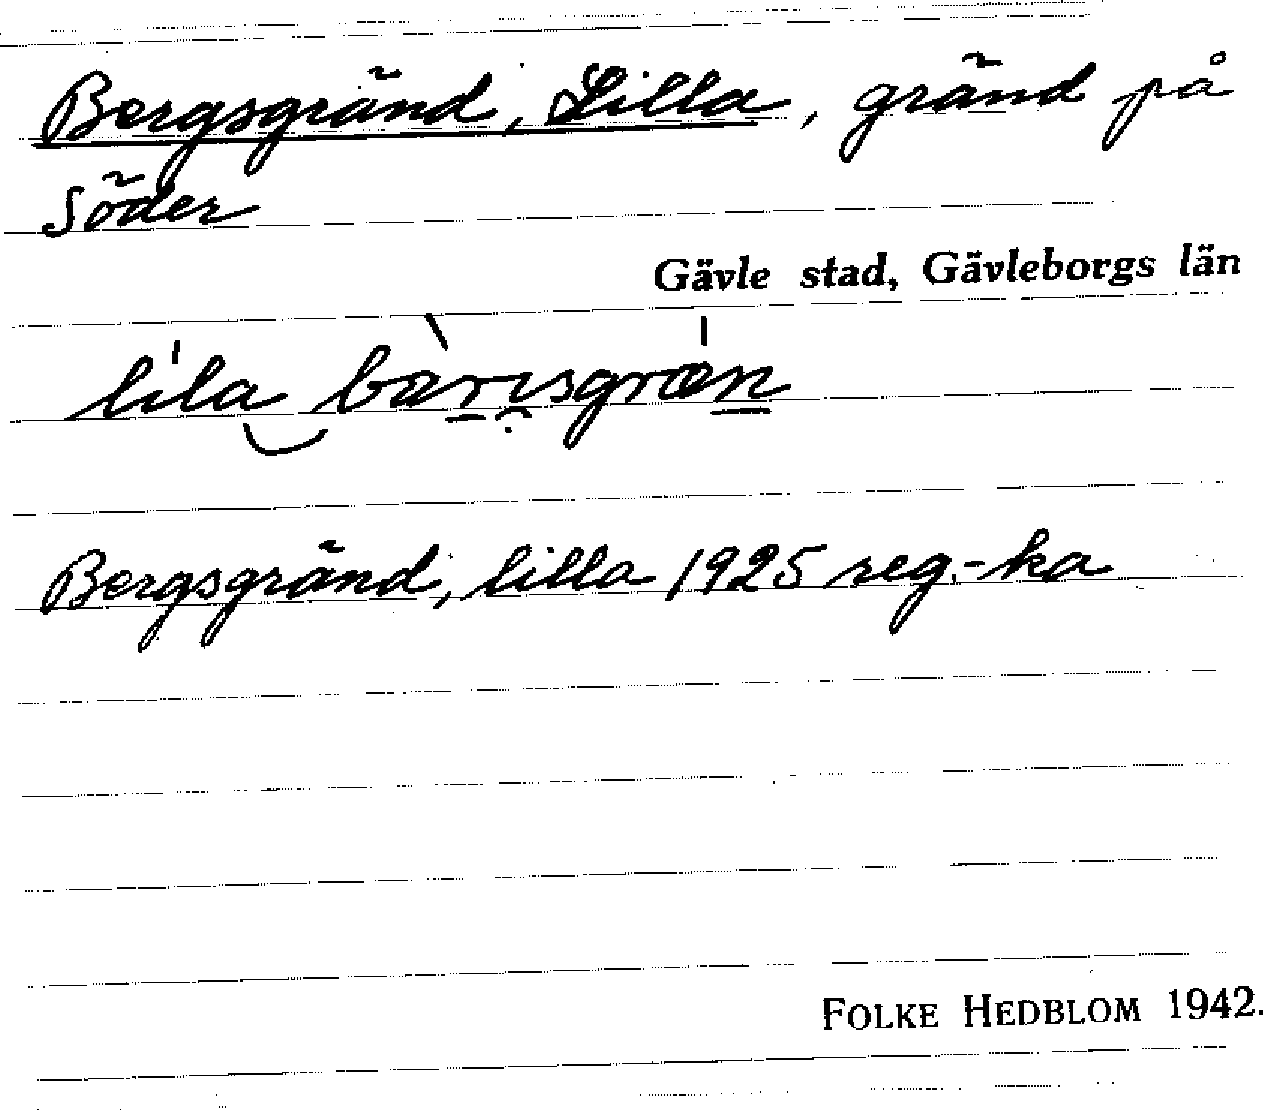 Bergsgränd, Lilla, gränd på
Söder
Gävle stad, Gävleborgs län
lila
Bergsgränd, lilla 1925 reg.-ka
FOLKE HEDBLOM 1942.